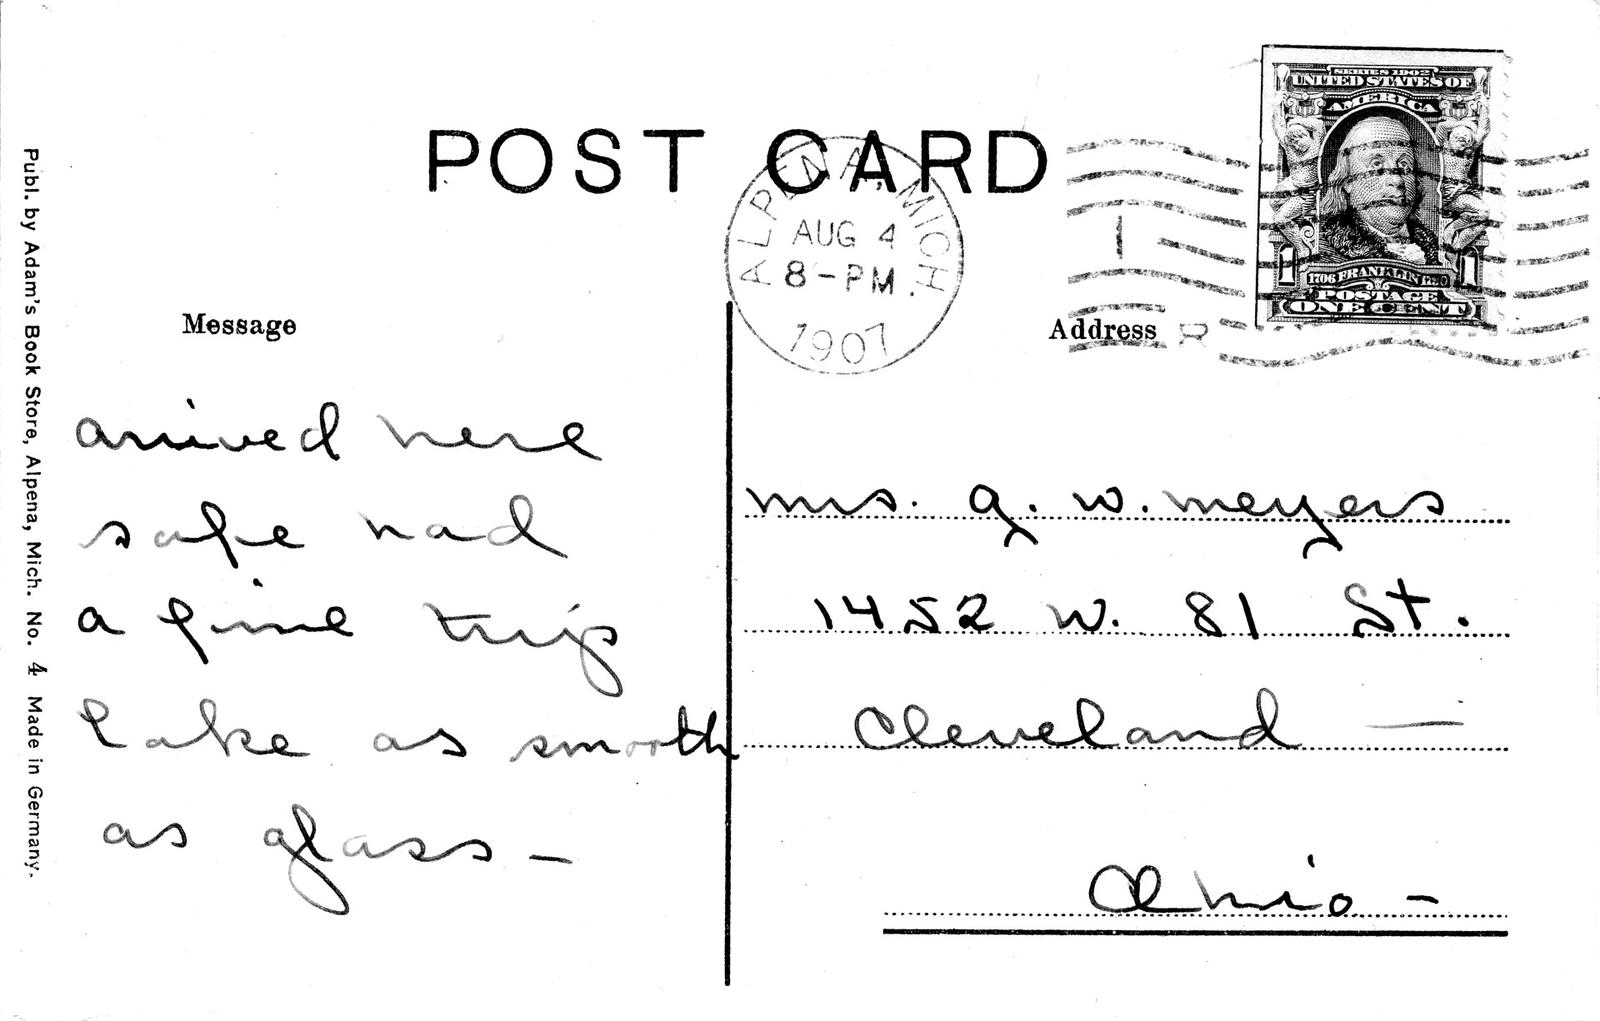 POST CARD
SERIES 1902
UNITED STATES OF
AMERICA
1 1
1706 FRANKLIN 1790
POSTAGE
ONE CENT
ALPENA, MICH.
AUG 4
8-PM
1907
1
Message
Address
arrived here
safe had
a fine trip
Lake as smooth
as glass –
mrs. G. W. Meyers
1452 W. 81 St.
Cleveland —
Ohio –
Publ. by Adam's Book Store, Alpena, Mich. No. 4 Made in Germany.